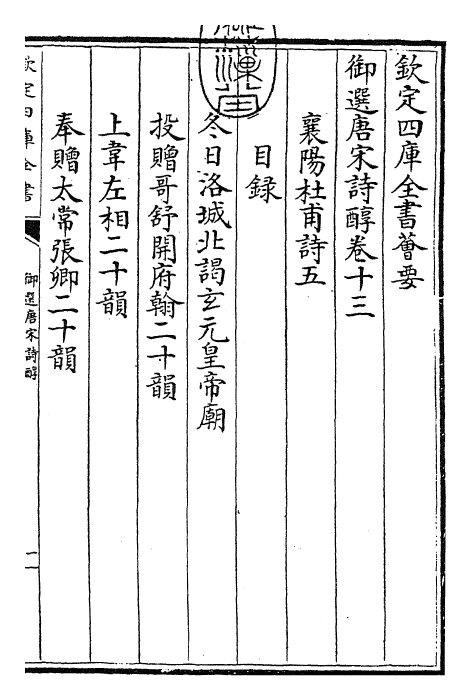 欽定四庫全書薈要
御選唐宋詩醇卷十三
襄陽杜甫詩五
目録
冬日洛城北謁玄元皇帝廟
投贈哥舒開府翰二十韻
上韋左相二十韻
奉贈太常張卿二十韻
欽定四庫全書
御選唐宋詩醇